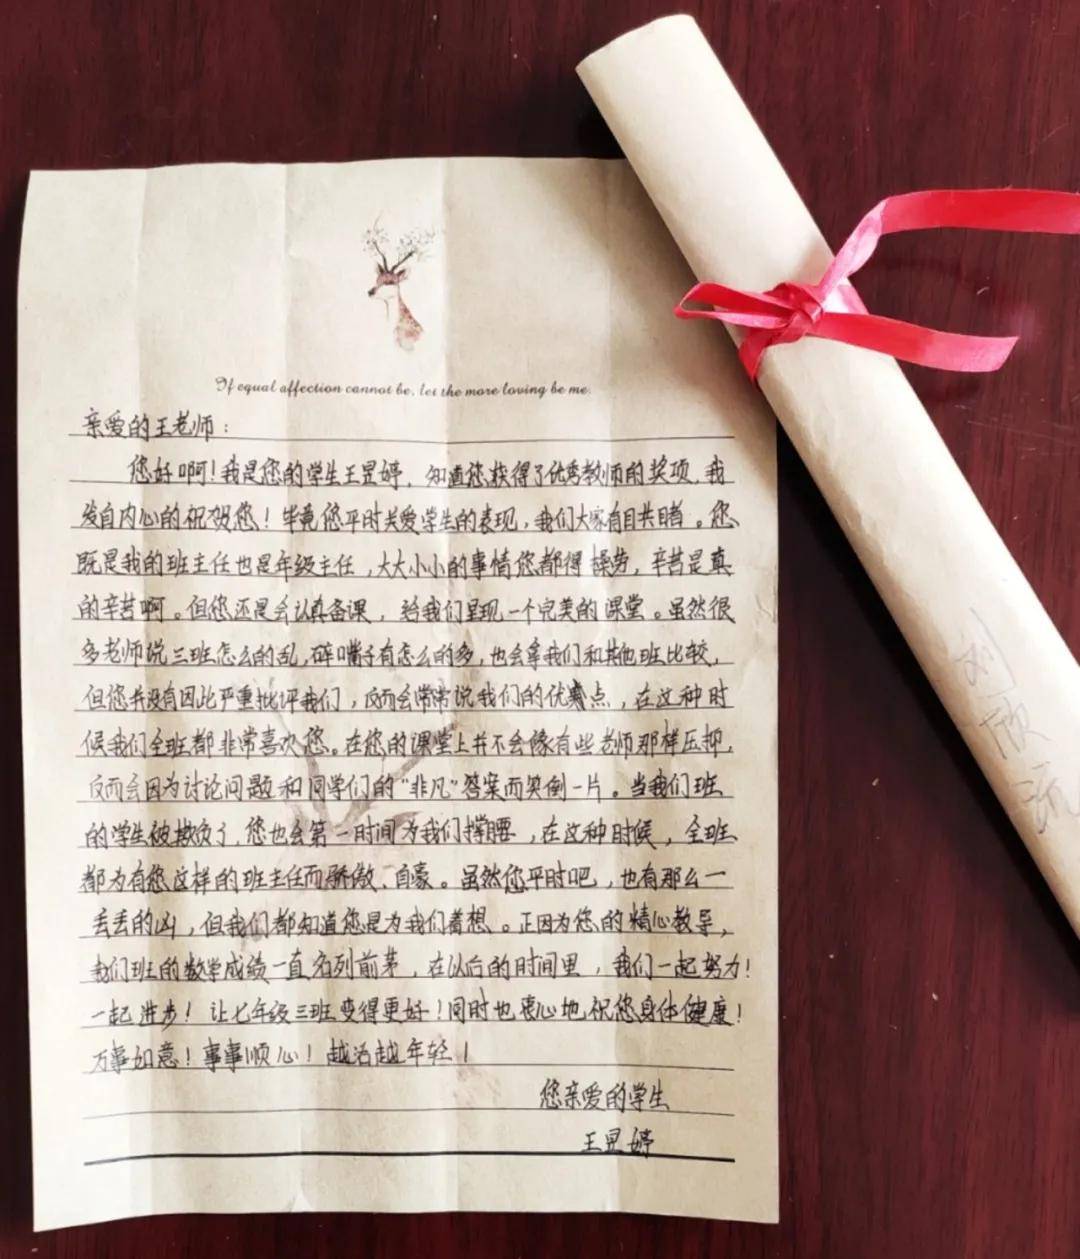 If equal affection cannot be, let the more loving be me.
亲爱的王老师：
您好啊！我是您的学生王昱婷，知道您获得了优秀教师的奖项，我
发自内心的祝贺您！毕竟您平时关爱学生的表现，我们大家有目共睹。您
既是我的班主任也是年级主任，大大小小的事情您都得操劳，辛苦是真
的辛苦啊。但您还是会认真备课，给我们呈现一个完美的课堂。虽然很
多老师说三班怎么的乱，碎嘴子有怎么的多，也会拿我们和其他班比较，
但您并没有因此严重批评我们，反而会常常说我们的优点，在这种时
候我们全班都非常喜欢您。在您的课堂上并不会像有些老师那样压抑，
反而会因为讨论问题和同学们的“非凡”答案而笑倒一片。当我们班
的学生被欺负了，您也会第一时间为我们撑腰，在这种时候，全班
都为有您这样的班主任而骄傲、自豪。虽然您平时吧，也有那么一
丢丢的凶，但我们都知道您是为我们着想。正因为您的精心教导，
我们班的数学成绩一直名列前茅，在以后的时间里，我们一起努力！
一起进步！让七年级三班变得更好！同时也衷心地祝您身体健康！
万事如意！事事顺心！越活越年轻！
您亲爱的学生
王昱婷
刘欣沅